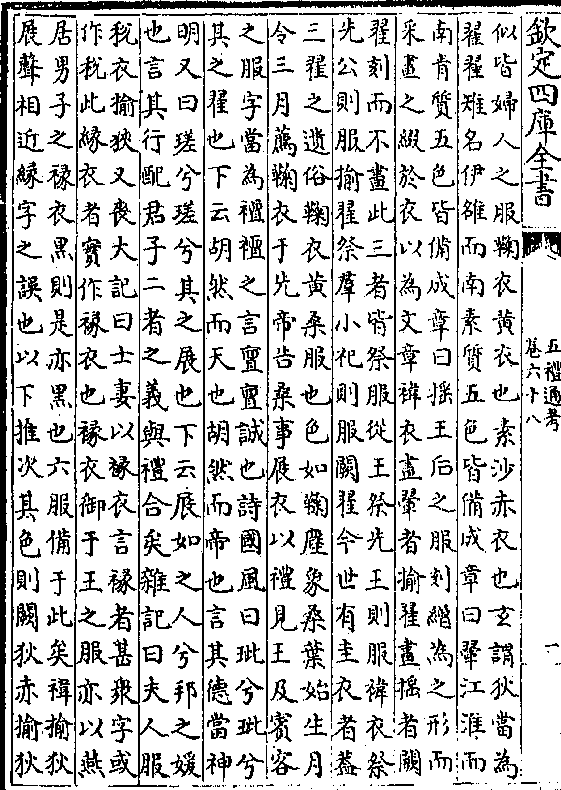 欽定四庫全書
五禮通考
卷六十八
一
似皆婦人之服鞠衣黄衣也素沙赤衣也玄謂狄當為
翟翟雉名伊雒而南素質五色皆備成章曰翬江淮而
南青質五色皆備成章曰揺王后之服刻繒為之形而
采畫之綴於衣以為文章褘衣畫翬者揄翟畫揺者闕
翟刻而不畫此三者皆祭服從王祭先王則服褘衣祭
先公則服揄翟祭羣小祀則服闕翟今世有圭衣者葢
三翟之遺俗鞠衣黄桑服也色如鞠塵象桑葉始生月
令三月薦鞠衣于先帝告桑事展衣以禮見王及賓客
之服字當為襢襢之言亶亶誠也詩國風曰玼兮玼兮
其之翟也下云胡然而天也胡然而帝也言其德當神
明又曰瑳兮瑳兮其之展也下云展如之人兮邦之媛
也言其行配君子二者之義與禮合矣雜記曰夫人服
税衣揄狄又喪大記曰士妻以褖衣言褖者甚衆字或
作税此緣衣者實作褖衣也褖衣御于王之服亦以燕
居男子之褖衣黒則是亦黒也六服備于此矣褘揄狄
展聲相近緣字之誤也以下推次其色則闕狄赤揄狄